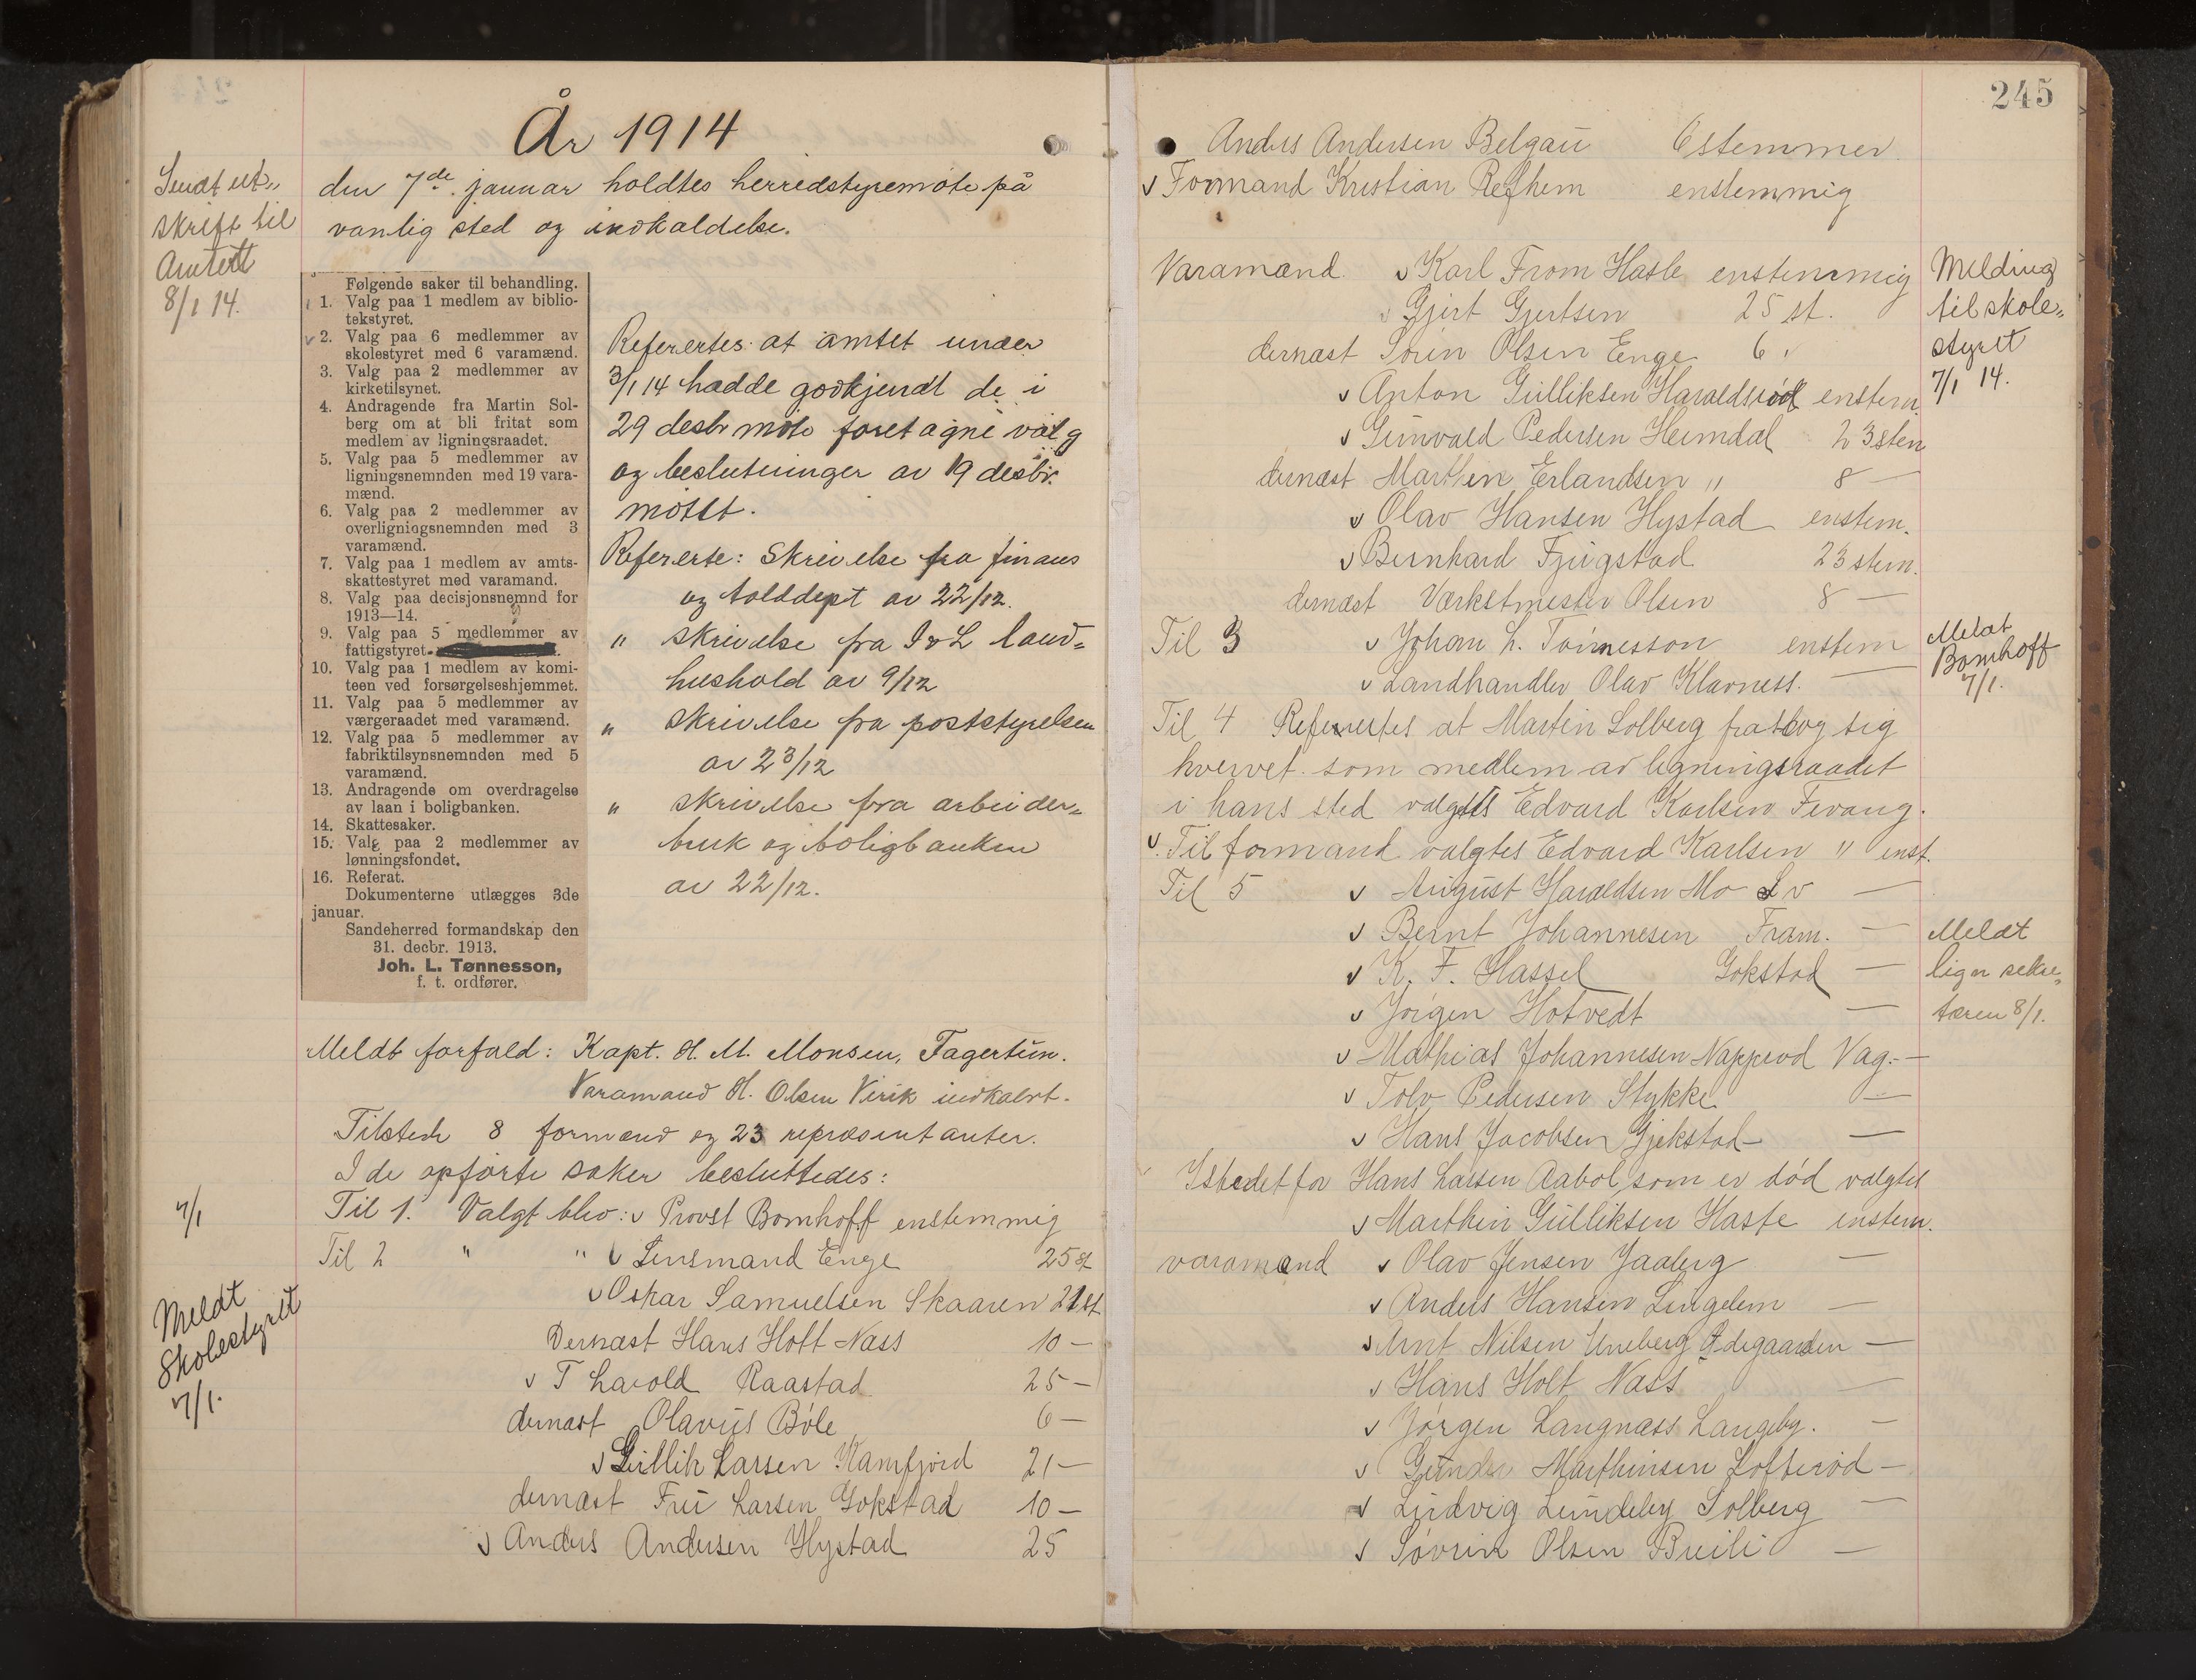 År 1914
Sendt ut„
skrift til
Amtet
8/1 14.
den 7de januar holdtes herredstyremøte på
vanlig sted og indkaldelse.
Følgende saker til behandling.
1. Valg paa 1 medlem av biblio-
tekstyret.
2. Valg paa 6 medlemmer av
skolestyret med 6 varamænd.
3. Valg paa 2 medlemmer av
kirketilsynet.
4. Andragende fra Martin Sol-
berg om at bli fritat som
medlem av ligningsraadet.
5. Valg paa 5 medlemmer av
ligningsnemnden med 19 vara-
mænd.
6. Valg paa 2 medlemmer av
overligningsnemnden med 3
varamænd.
7. Valg paa 1 medlem av amts-
skattestyret med varamand.
8. Valg paa decisjonsnemnd for
1913—14.
9. Valg paa 5 medlemmer av
fattigstyret.
10. Valg paa 1 medlem av komi-
teen ved forsørgelseshjemmet.
11. Valg paa 5 medlemmer av
værgeraadet med varamænd.
12. Valg paa 5 medlemmer av
fabriktilsynsnemnden med 5
varamænd.
13. Andragende om overdragelse
av laan i boligbanken.
14. Skattesaker.
15. Valg paa 2 medlemmer av
lønningsfondet.
16. Referat.
Dokumenterne utlægges 3de
januar.
Sandeherred formandskap den
31. decbr. 1913.
Joh. L. Tønnesson,
f. t. ordfører.
Referertes at amtet under
3/1 14 hadde godkjendt de i
29 desbr møte foretagne valg
og beslutninger av 19 desbr.
møtet.
Refererte: Skrivelse fra finans
og tolddept av 22/12.
" skrivelse fra I & L land=
hushold av 9/12
" skrivelse fra poststyrelsen
av 23/12
" skrivelse fra arbeider=
bruk og boligbanken
av 22/12.
Meldt forfald: Kapt. H. M. Monsen, Fagertun.
Varamand H. Olsen Virik indkaldt.
Tilstede 8 formænd og 23 repræsentanter.
I de opførte saker besluttedes:
7/1
Til 1. Valgt blev: v Provst Bomhoff enstemmig
Til 2 " " v Lensmand Enge 25 st
v Oskar Samuelsen Skaaren 21 st
Meldt
Skolestyret
7/1.
Dernæst Hans Holt Næss 10 —
v Tharald Raastad 25 —
dernæst Olavus Bøle 6 —
v Gullik Larsen Kamfjord 21 —
dernæst Fru Larsen Gokstad 10 —
v Anders Andersen Hystad 25
245
Anders Andersen Belgau 6 stemmer
v Formand Kristian Refhem enstemmig
Varamænd v Karl From Hasle enstemmig
v Gjert Gjertsen 25 st.
dernæst Sørin Olsen Enge 6 "
v Anton Gulliksen Haraldsrød enstem.
v Gunvald Pedersen Heimdal 23 stem
dernæst Marthin Erlandsen " 8 —
v Olav Hansen Hystad enstem.
v Bernhard Fjugstad 23 stem.
dernæst Værkstmester Olsen 8 —
Melding
til skole„
styret
7/1 14.
Til 3 v Johan L. Tønnesson enstem
v Landhandler Olav Klavness. —
Meldt
Bomhoff
7/1.
Til 4 Referertes at Martin Solberg fratog sig
hvervet som medlem av ligningsraadet
i hans sted valgtes Edvard Karlsen Fevang.
v. Til formand valgtes Edvard Karlsen " enst.
Til 5 v August Haraldsen Mo Sv —
v Bernt Johannesen Fram. —
v K. F. Hassel Gokstad —
v Jørgen Hotvedt —
Meldt
lign sekre„
tæren 8/1.
v Mathias Johannesen Napperød Vag. —
v Tolv Pedersen Stykke —
v Hans Jacobsen Gjekstad —
Istedetfor Hans Larsen Aabol, som er død valgtes
v Marthin Gulliksen Haste enstem.
varamænd v Olav Jensen Jaaberg —
v Anders Hansen Lingelem —
v Arnt Nilsen Uneberg Ødegaarden —
v Hans Holt Næss —
v Jørgen Langnæss Langeby. —
v Marthinsen Lofterød —
v Ludvig Lundeby Solberg —
v Søvrin Olsen Breili —